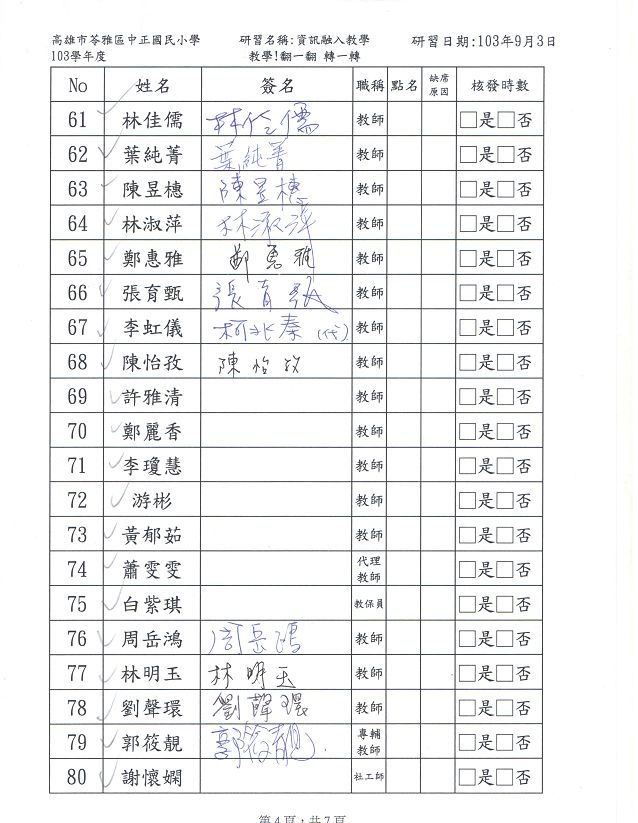 高雄市苓雅區中正國民小學 研習名稱:資訊融入教學 研習日期:103年9月3日
103學年度 教學!翻一翻 轉一轉
No 姓名 簽名 職稱 點名 缺席原因 核發時數
61 林佳儒 林佳儒 教師 □是□否
62 葉純菁 葉純菁 教師 □是□否
63 陳昱橞 陳昱橞 教師 □是□否
64 林淑萍 林淑萍 教師 □是□否
65 鄭惠雅 鄭惠雅 教師 □是□否
66 張育甄 張育甄 教師 □是□否
67 李虹儀 柯兆秦(代) 教師 □是□否
68 陳怡孜 陳怡孜 教師 □是□否
69 許雅清 教師 □是□否
70 鄭麗香 教師 □是□否
71 李瓊慧 教師 □是□否
72 游彬 教師 □是□否
73 黃郁茹 教師 □是□否
74 蕭雯雯 代理教師 □是□否
75 白紫琪 教保員 □是□否
76 周岳鴻 周岳鴻 教師 □是□否
77 林明玉 林明玉 教師 □是□否
78 劉聲環 劉聲環 教師 □是□否
79 郭筱靚 郭筱靚 專輔教師 □是□否
80 謝懷嫻 社工師 □是□否
第4頁,共7頁